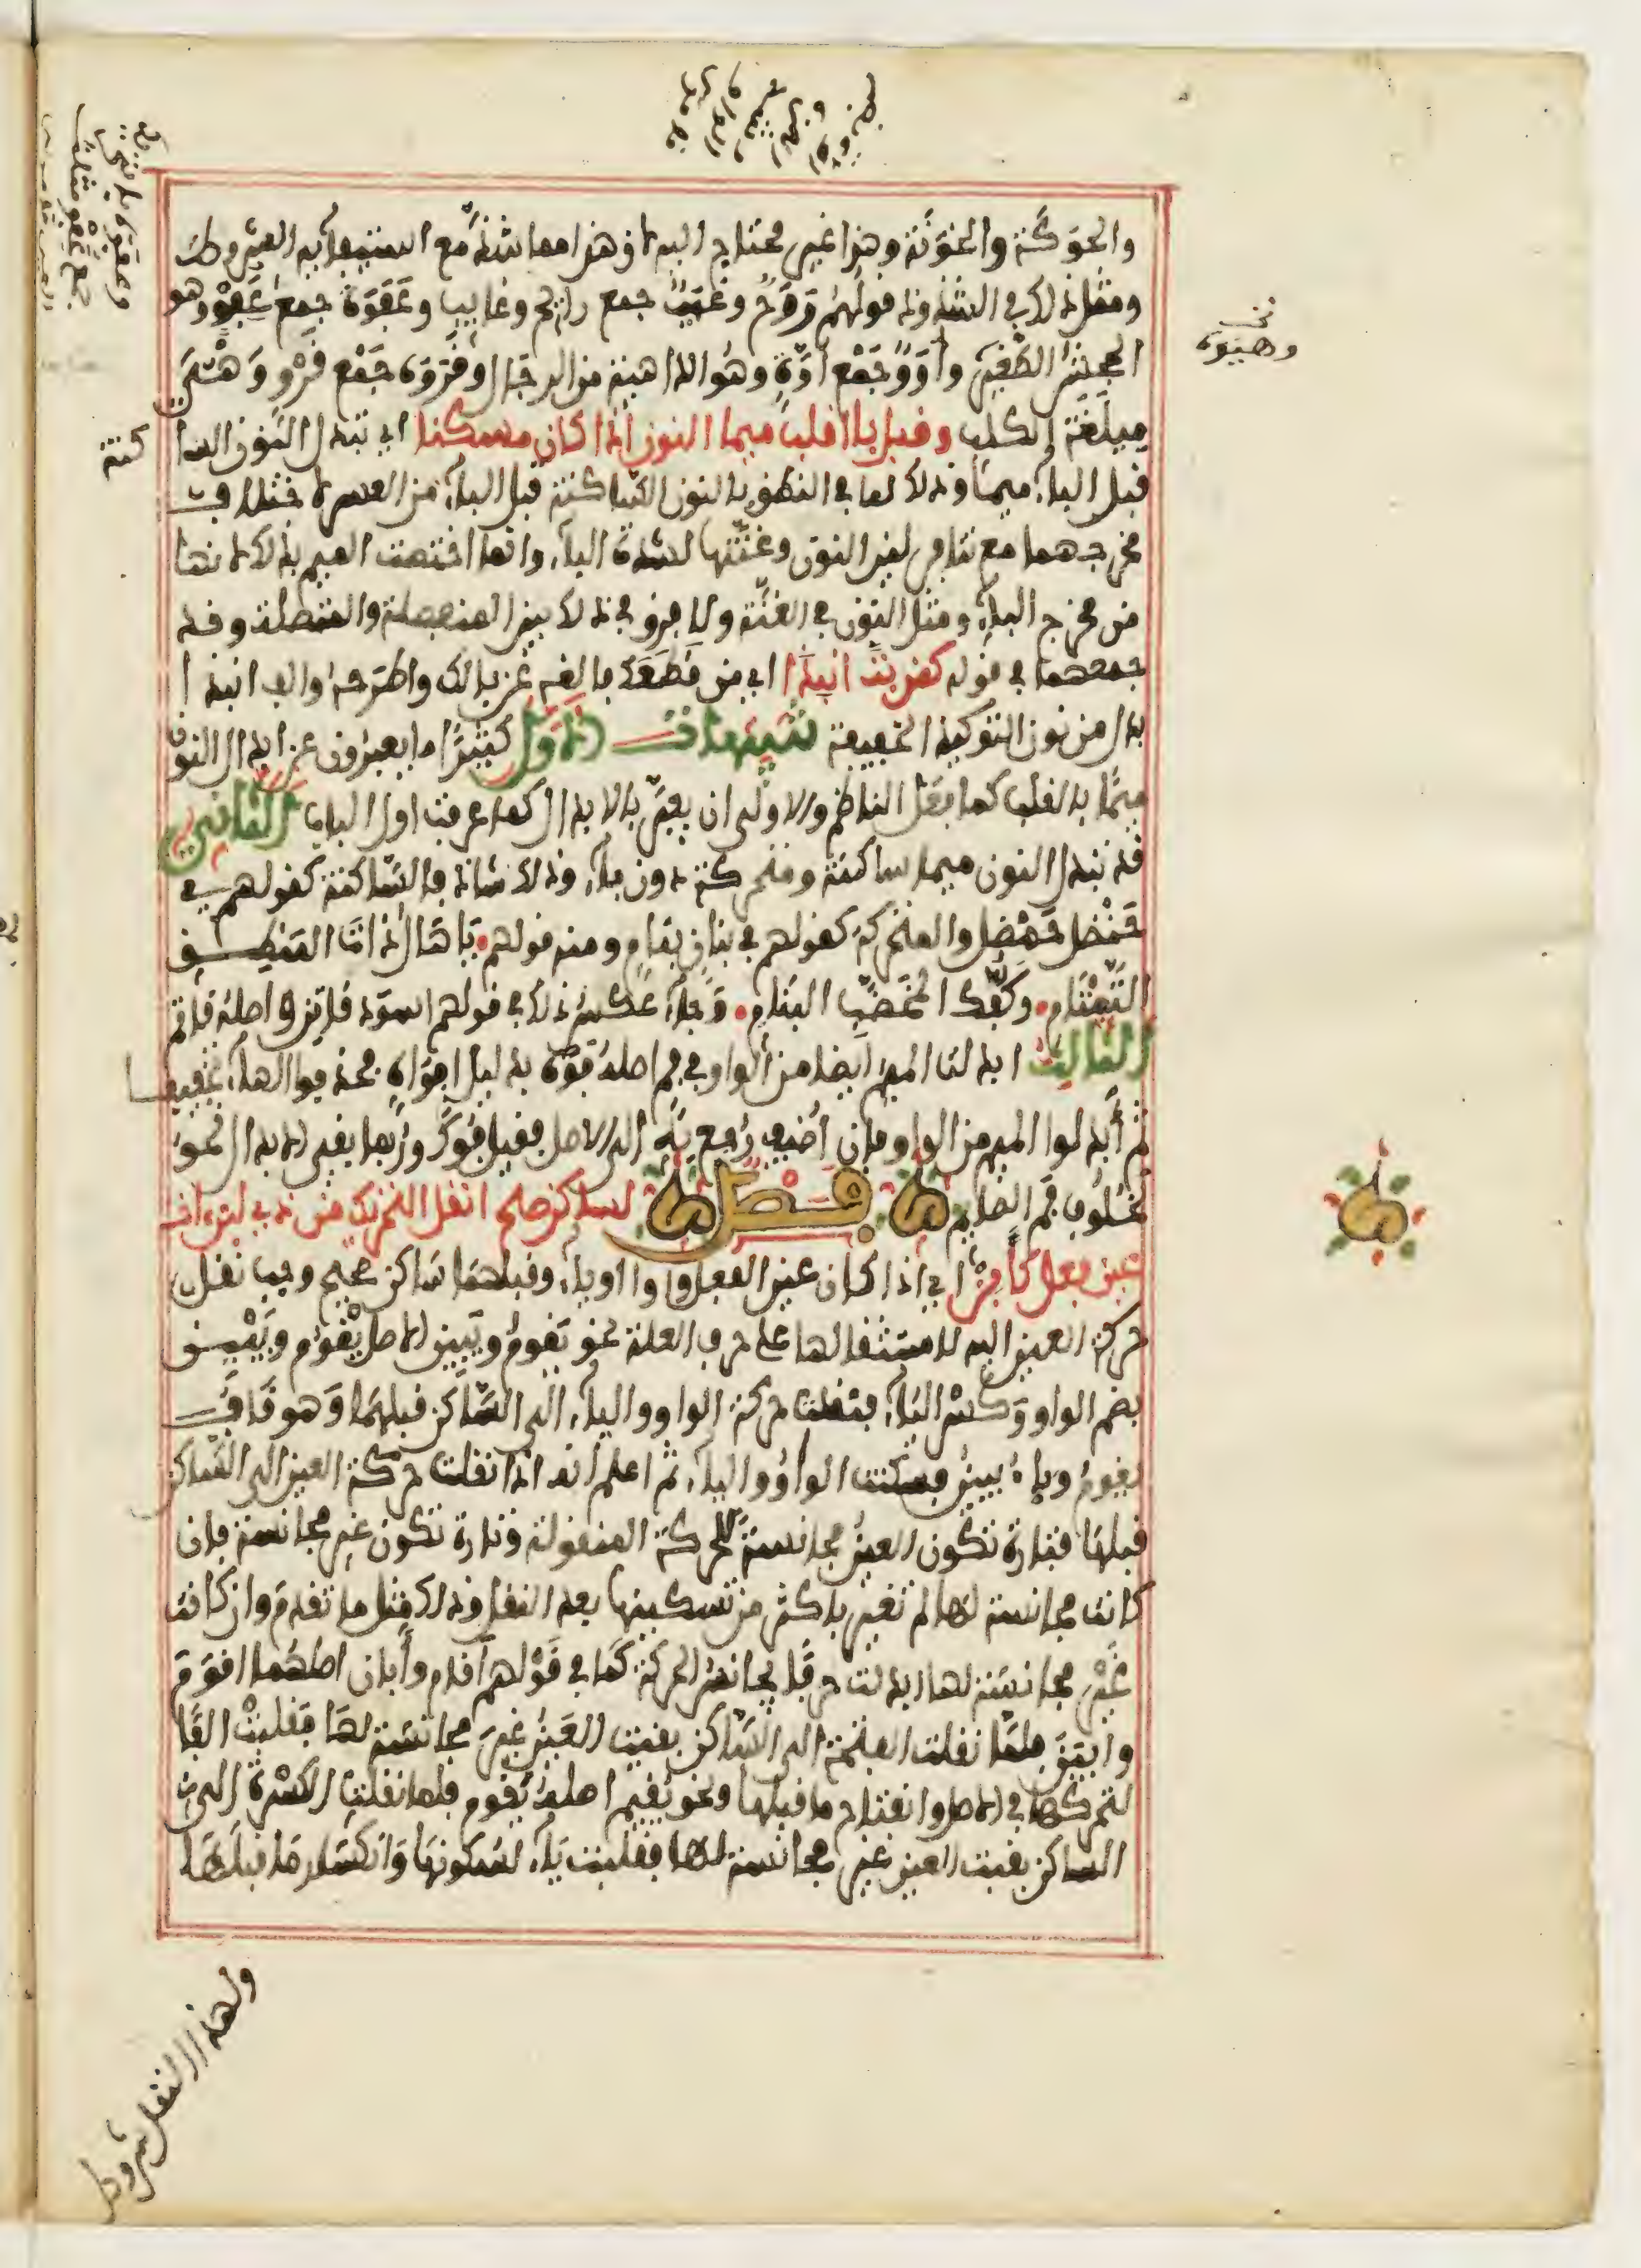 والحوكة والخونة وهذا غير محتاج اليه لان هذا مما شذ مع استيفائه الشروط
ومثل ذلك في الشذوذ قولهم روح وغيب جمع رائح وغايب وعفوة جمع عفو وهو
الجحش الصغير وأوو جمع أوة وهو الداهية من الرجال وقروة جمع قرو وهي
ميلغة الكلب وقبل با اقلب ميما النون اذا كان مسكنا اي تبدل النون السا
قبل الباء ميما وذلك لما في النطق بالنون الساكنة قبل الباء من العسر لاختلاف
مخرجهما مع تنافر لين النون وغنتها لشدة الباء وانما اختصت الميم بذلك لانها
من مخرج الباء ومثل النون في الغنة ولا فرق في ذلك بين المنفصلة والمتصلة وقد
جمعهما في قوله كمن بت انبذا اي من قطعك فالقه عن بالك واطرحه والف انبذا
بدل من نون التوكيد الخفيفة تنبيهات الاول كثيرا ما يعبرون عن ابدال النون
ميما بالقلب كما فعل الناظم والاولى ان يعبر بالابدال كما عرفت اول الباب الثاني
قد تبدل النون ميما ساكنة ومتحركة دون باء وذلك شاذ فالساكنة كقولهم في
حنظل حمظل والمتحركة كقولهم في بنان بنام ومنه قولهم يا هال ذات المنطق
التمتام وكفك المخضب البنام وجاء عكس ذلك في قولهم اسود قاتن واصله قاتم
الثالث ابدلت الميم ايضا من الواو في فم اصله فوه بدليل افواه فحذفوا الهاء تخفيفا
ثم أبدلوا الميم من الواو فان أضيف رجع به الى الاصل فقيل فوك وربما بقي الابدال نحو
لخلوف فم الصايم فصل لساكن صح انقل التحريك من ذي لين ات
عين فعل كأبن اي اذا كان عين الفعل واوا او ياء وقبلهما ساكن صحيح وجب نقل
حركة العين اليه لاستثقالها على حرف العلة نحو يقوم ويبين الاصل يقوم ويبين
بضم الواو وكسر الياء فنقلت حركة الواو والياء الى الساكن قبلهما وهو قاف
يقوم وباء يبين فسكنت الواو والياء ثم اعلم انه اذا نقلت حركة العين الى الساكن
قبلها فتارة تكون العين مجانسة للحركة المنقولة وتارة تكون غير مجانسة فان
كانت مجانسة لها لم تغير باكثر من تسكينها بعد النقل وذلك مثل ما تقدم وان كانت
غير مجانسة لها ابدلت حرفا يجانس الحركة كما في قولهم أقام وأبان اصلهما اقوم
وابين فلما نقلت الفتحة الى الساكن بقيت العين غير مجانسة لها فقلبت الفا
لتحركها في الاصل وانفتاح ما قبلها ونحو يقيم اصله يقوم فلما نقلت الكسرة الى
الساكن بقيت العين غير مجانسة لها فقلبت ياء لسكونها وانكسار ما قبلها
وهيوة
كنة
ولهذا النقل شروط